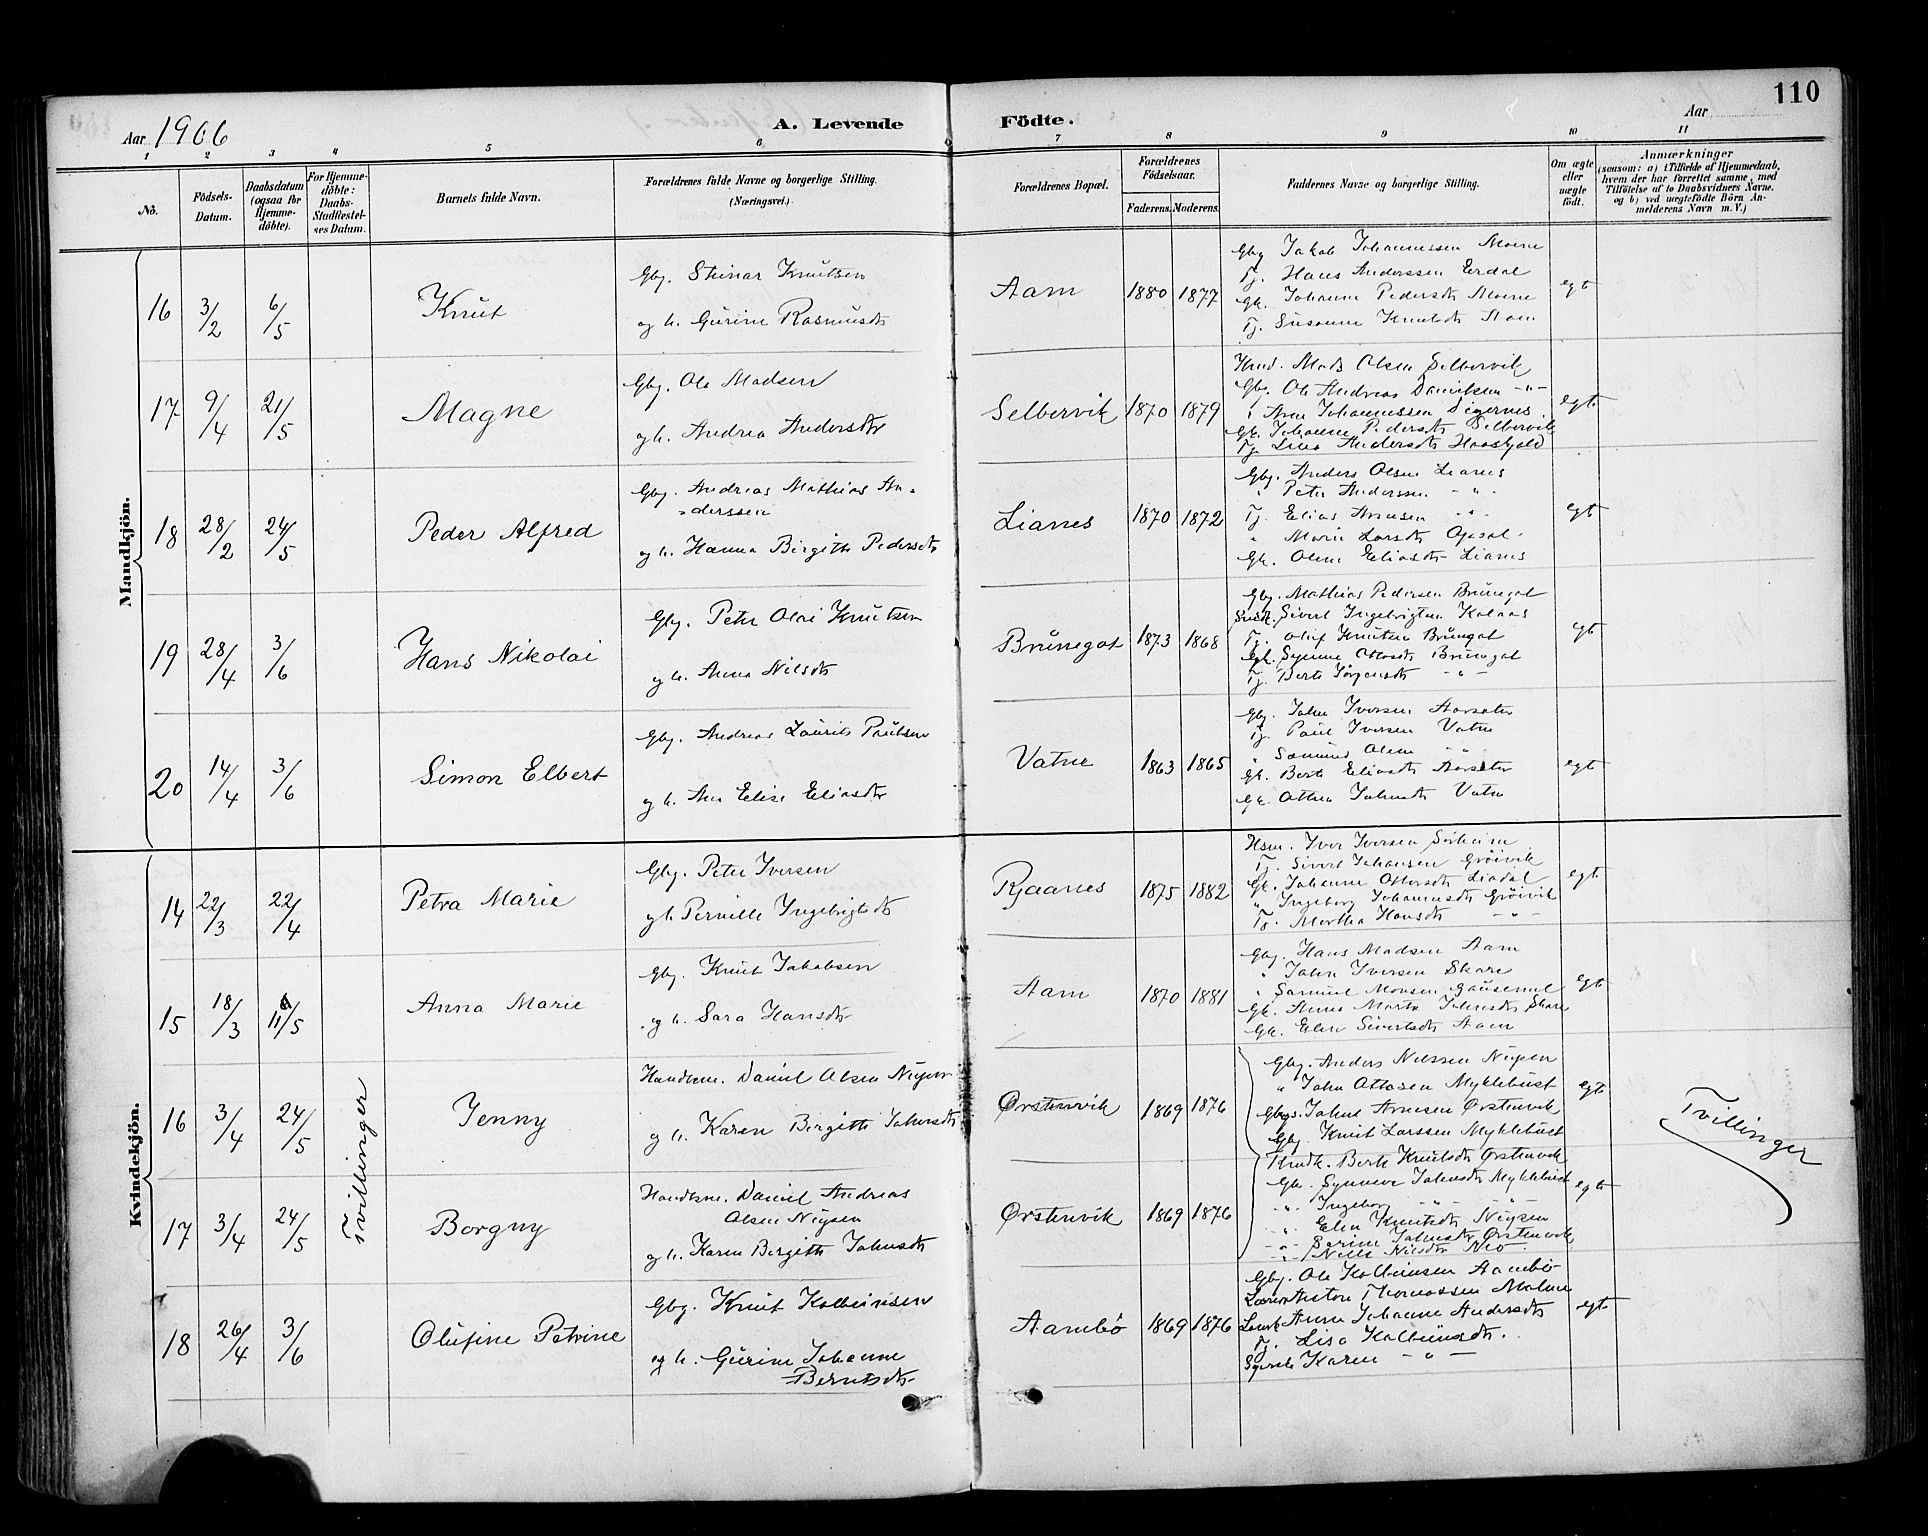 110
Aar 1906
A. Levende Födte.
Aar
1 2 3 4 5 6 7 8 9 10 11
No.
Födsels-Datum.
Daabsdatum (ogsaa for Hjemme-döbte).
For Hjemme-döbte: Daabs-Stadfæstel-ses Datum.
Barnets fulde Navn.
Forældrenes fulde Navne og borgerlige Stilling. (Næringsvei.)
Forældrenes Bopæl.
Forældrenes Födselsaar.
Faderens. Moderens.
Faddernes Navne og borgerlige Stilling.
Om ægte eller uægte födt.
Anmærkninger
(saasom: a) i Tilfælde af Hjemmedaab, hvem der har forrettet samme, med Tilföielse af to Daabsvidners Navne, og b) ved uægtefödte Börn An-melderens Navn m. V.)
Mandkjön.
16 3/2 6/5 Knut
Gbg. Steinar Knutsen
og h. Gurine Rasmusdtr
Aam 1880 1877
Gbg Jakob Johannessen Moene
Tj. Hans Anderssen Eerdal
Gk. Johanne Pedersdtr Moene
Tj. Susanne Knutsdtr Aam
egt
17 9/4 21/5 Magne
Gbg. Ole Madsen
og h. Andrea Andersdtr
Selbervik 1870 1879
Mads Olsen Selbervik
Gbg. Ole Andreas Danielsen -"-
" Arne Johannessen Digernes.
Gk. Johanne Pedersdtr Selbervik
Tj. Lina Andersdtr
egt
18 28/2 24/5 Peder Alfred
Gbg. Andreas Mathias An-
-derssen
og h. Hanna Birgitte Pedersdtr
Lianes 1870 1872
Gbg. Anders Olsen Lianes
" Peter Anderssen -"-
Tj. Elias Arnesen -"-
" Marie Larsdtr Opsal
Gk. Oline Eliasdtr Lianes
egt
19 28/4 3/6 Hans Nikolai
Gbg. Peter Olai Knutsen
og h. Anna Nilsdtr
Brunegot 1873 1868
Gbg. Mathias Pedersen Brungot
Sivert Ingebrigtsen Kolaas
Tj. Oluf Knutsen Brungot
Gk. Synnve Ottosdtr Brungot
Tj. Berte Jörgensdtr -"-
egt
20 14/4 3/6 Simon Elbert
Gbg. Andreas Laurits Paulsen
og h. Ane Elise Eliasdtr
Vatne 1863 1865
Gbg. John Iversen Aarsæter
Tj. Paul Iversen Vatne
" Rasmus Olsen -"-
Gk. Berte Eliasdtr Aarsæter
Gk. Johnsdtr Vatne
egt
Kvindekjön.
14 22/3 22/4 Petra Marie
Gbg. Peter Iversen
og h. Pernille Ingebrigtsdtr
Rjaanes 1875 1882
Hsm. Iver Iversen Sörheim
Tj. Sivert Johansen Gröivik
Gk. Johanne Ottersdtr Liadal
" Ingeborg Johannesdtr Gröivik
Tj. Martha Hansdtr -"-
egt
15 18/3 11/5 Anna Marie
Gbg. Knut Jakobsen
og h. Sara Hansdtr
Aam 1870 1881
Gbg. Hans Madsen Aam
" John Iversen Skare
" Samuel Monsen
Gk. Anne Marta Johnsdtr Skare
Gk. Elen Sivertsdtr Aam
egt
16 3/4 24/5 Tvillinger Jenny
Handlsm. Daniel Olsen Nupen
og h. Karen Birgitte Johnsdtr
Ørstenvik 1869 1876
Gbg. Anders Nilssen Nupen
" John Ottosen Myklebust
Gbgs. Johns Arnesen Ørstenvik
Gbg. Knut Larssen Myklebust
egt
Tvillinger
17 3/4 24/5 Borgny
Handlsm. Daniel Andreas
Olsen Nupen
og h. Karen Birgitte Johnsdtr
Ørstenvik 1869 1876
Berte Knutsdtr Ørstenvik
Gk. Synnøve Johnsdtr Myklebust
-"- Ingeborg -"- -"-
-"- Elen Knutsdtr Nupen
-"- Sarine Johnsdtr Ørstenvik
-"- Nilsdtr
egt
18 26/4 3/6 Olufine Petrine
Gbg. Knut Kolbeinsen
og h. Gurine Johanne
Berntsdtr
Aambö 1869 1876
Gbg. Ole Kolbeinsen Aambö
Lærer Thomassen Malme
Anne Johanne Andersdtr
Tj. Lisa Kolbeinsdtr.
Karen -"-
egt